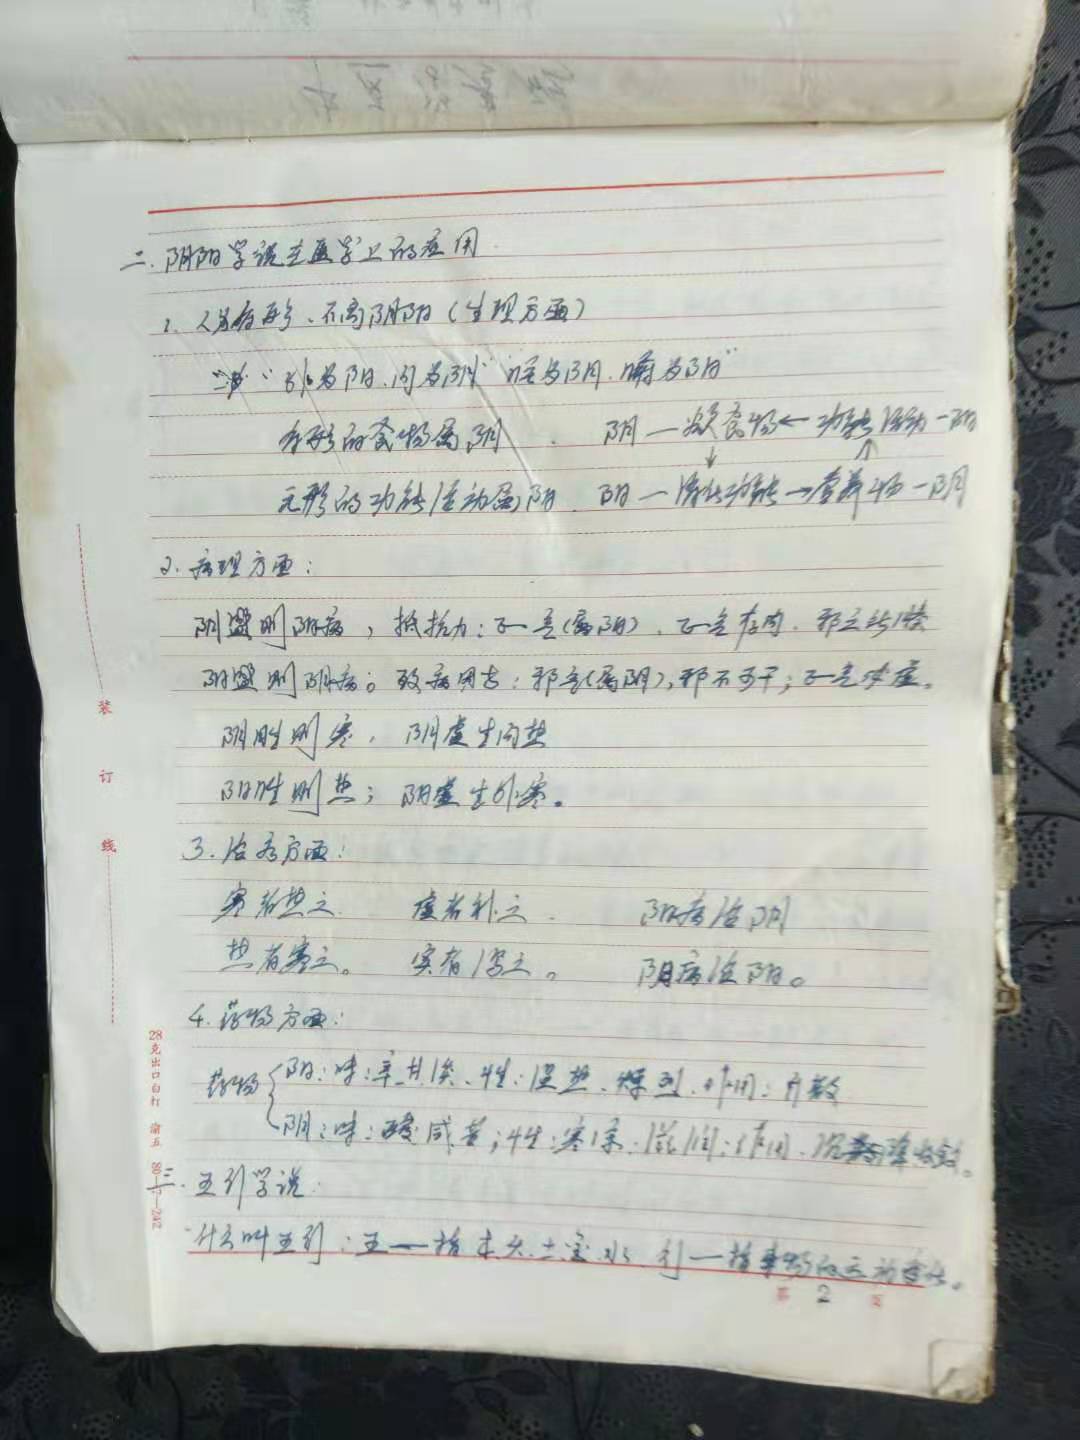 二.阴阳学说在医学上的应用.
1. 人身有形、不离阴阳(生理方面)
"外为阳.内为阴" "味为阴.
有形的食物属阴. 阴—饮食物←功能活动—阳
无形的功能活动属阳. 阳—消化功能→营养物—阴
2. 病理方面:
阴盛则阳病, 抵抗力:正气(属阳)、正气存内.邪
阳盛则阴病。致病因素:邪气(属阴),邪不可干;正气体虚。
阴胜则寒, 阴虚生内热
阳胜则热; 阳虚生外寒。
3.治疗方面:
寒者热之 虚者补之. 阳病治阴
热者寒之。 实者泻之。 阴病治阳。
4.药物方面:
药物 阳:味:辛.甘淡、性:温热.燥烈.作用:升散
阴:味:酸咸苦;性:寒凉.滋润:作用.沉降收敛。
三.五行学说:
什么叫五行:五—指木火土金水 行—指事物的运动变化。
装
订
线
28克出口白打 渝五 80—5—242
第 2 页